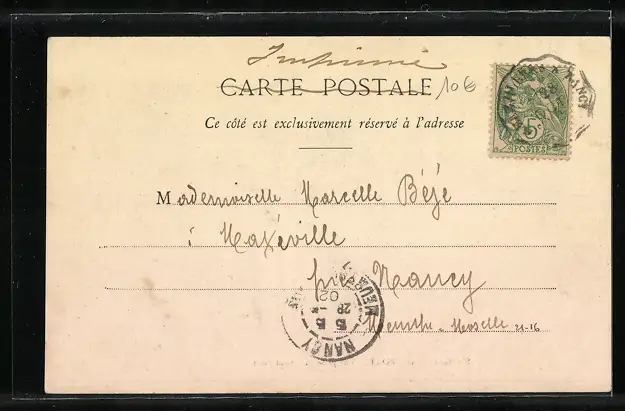 Imprimé
CARTE POSTALE
10€
Ce côté est exclusivement réservé à l'adresse
5c
POSTES
NANCY
Mademoiselle Marcelle Béjé
à Maxéville
près Nancy
Meurthe-Moselle 21-16
NANCY
5 5
28
02
MEURTHE